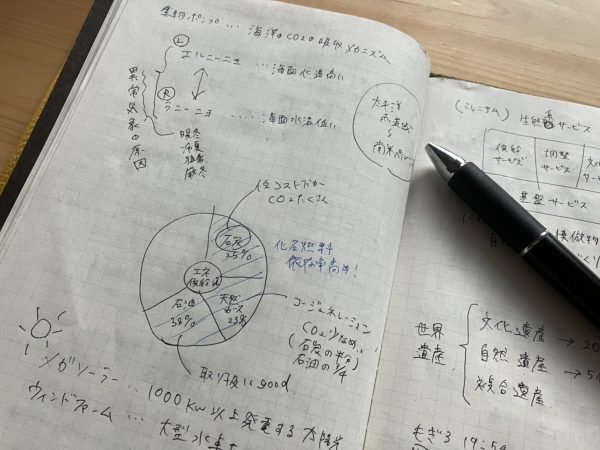 生物ポンプ … 海洋のCO2の吸収メカニズム
エルニーニョ …海面水温高い
ラニーニョ …海面水温低い
異常気象の原因
暖冬
冷夏
猛暑
厳冬
太平洋
赤道域
南米
低コストだが
CO2たくさん
石炭
25%
化石燃料
依存率高め!
エネ
供給
石油
38%
天然
ガス
23%
コージェネレーション
CO2少なめ
(石炭の半分
石油の3/4
取り扱いgood
メガソーラー … 1000kw以上発電する太陽光
ウィンドファーム … 大型
(ミレニアム) 生態系サービス
供給
サービス
調整
サービス
文化
基盤サービス
世界
遺産
文化遺産 → 20
自然遺産 → 5
複合遺産
もぎ3 19:54